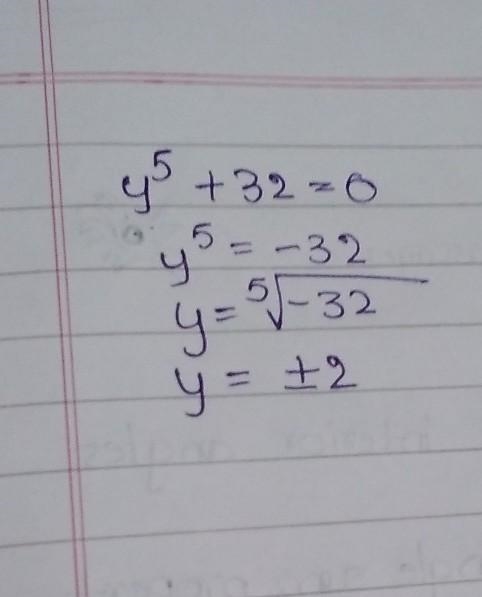 y⁵ + 32 = 0
y⁵ = -32
y = ⁵√-32
y = ±2